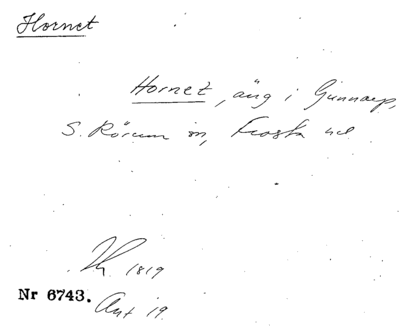 Hornet
Hornet, äng i Gunnarp,
S. Rörum sn, Frosta hd
1819
Nr 6743.
Ant 19